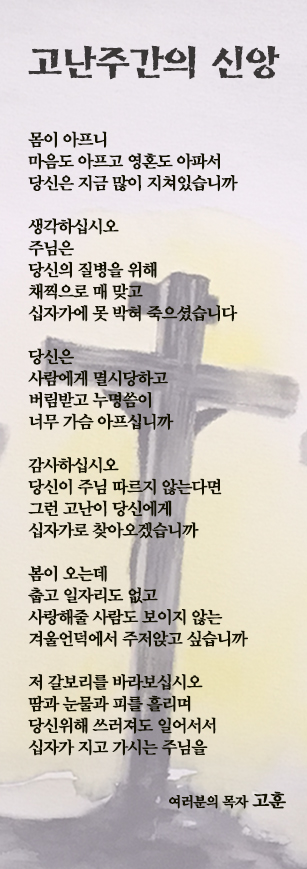 고난주간의 신앙
몸이 아프니
마음도 아프고 영혼도 아파서
당신은 지금 많이 지쳐있습니까
생각하십시오
주님은
당신의 질병을 위해
채찍으로 매 맞고
십자가에 못 박혀 죽으셨습니다
당신은
사람에게 멸시당하고
버림받고 누명씀이
너무 가슴 아프십니까
감사하십시오
당신이 주님 따르지 않는다면
그런 고난이 당신에게
십자가로 찾아오겠습니까
봄이 오는데
춥고 일자리도 없고
사랑해줄 사람도 보이지 않는
겨울언덕에서 주저앉고 싶습니까
저 갈보리를 바라보십시오
땀과 눈물과 피를 흘리며
당신위해 쓰러져도 일어서서
십자가 지고 가시는 주님을
여러분의 목자 고훈